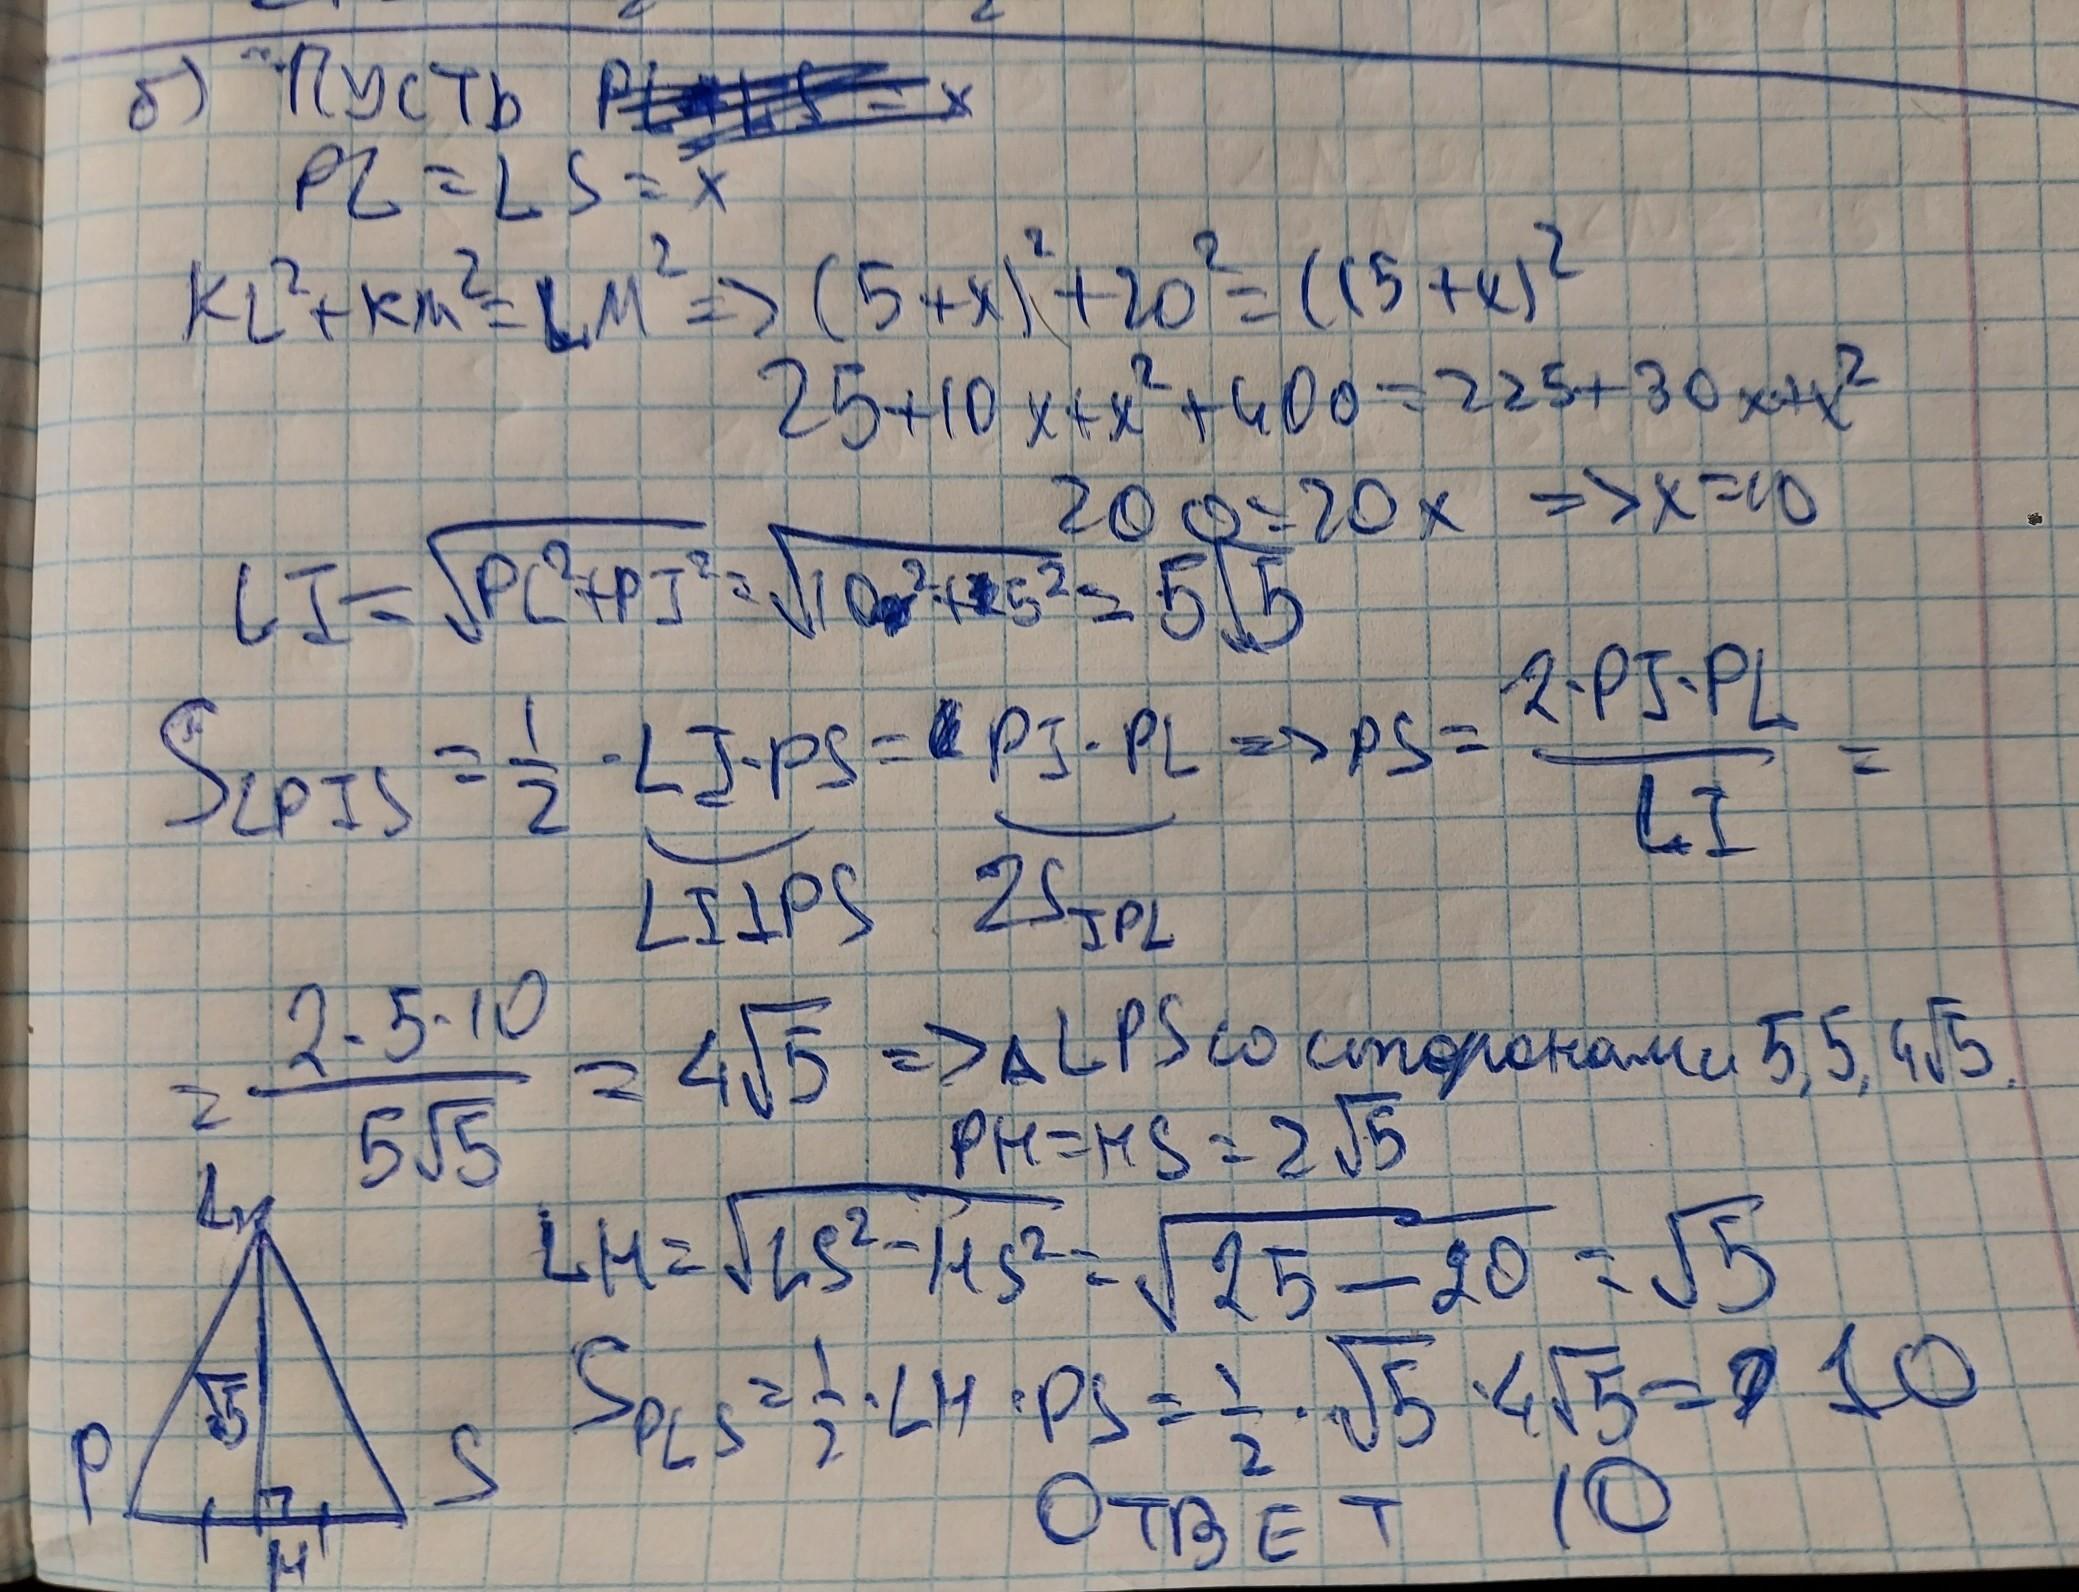 б) Пусть
PL = LS = x
KL² + KM² = LM² => (5+x)² + 20² = (15+x)²
25+10x+x²+400=225+30x+x²
200=20x => x=10
LI = √PL²+PI² = √10²+5² = 5√5
S LPIS = 1/2 · LI · PS = PI · PL => PS = 2·PI·PL / LI =
LI⊥PS 2S IPL
= 2·5·10 / 5√5 = 4√5 => Δ LPS со сторонами 5, 5, 4√5.
PH=HS=2√5
L
LH = √LS²-HS² = √25-20 = √5
√5
S PLS = 1/2 · LH · PS = 1/2 · √5 · 4√5 = 10
P H S
ОТВЕТ 10